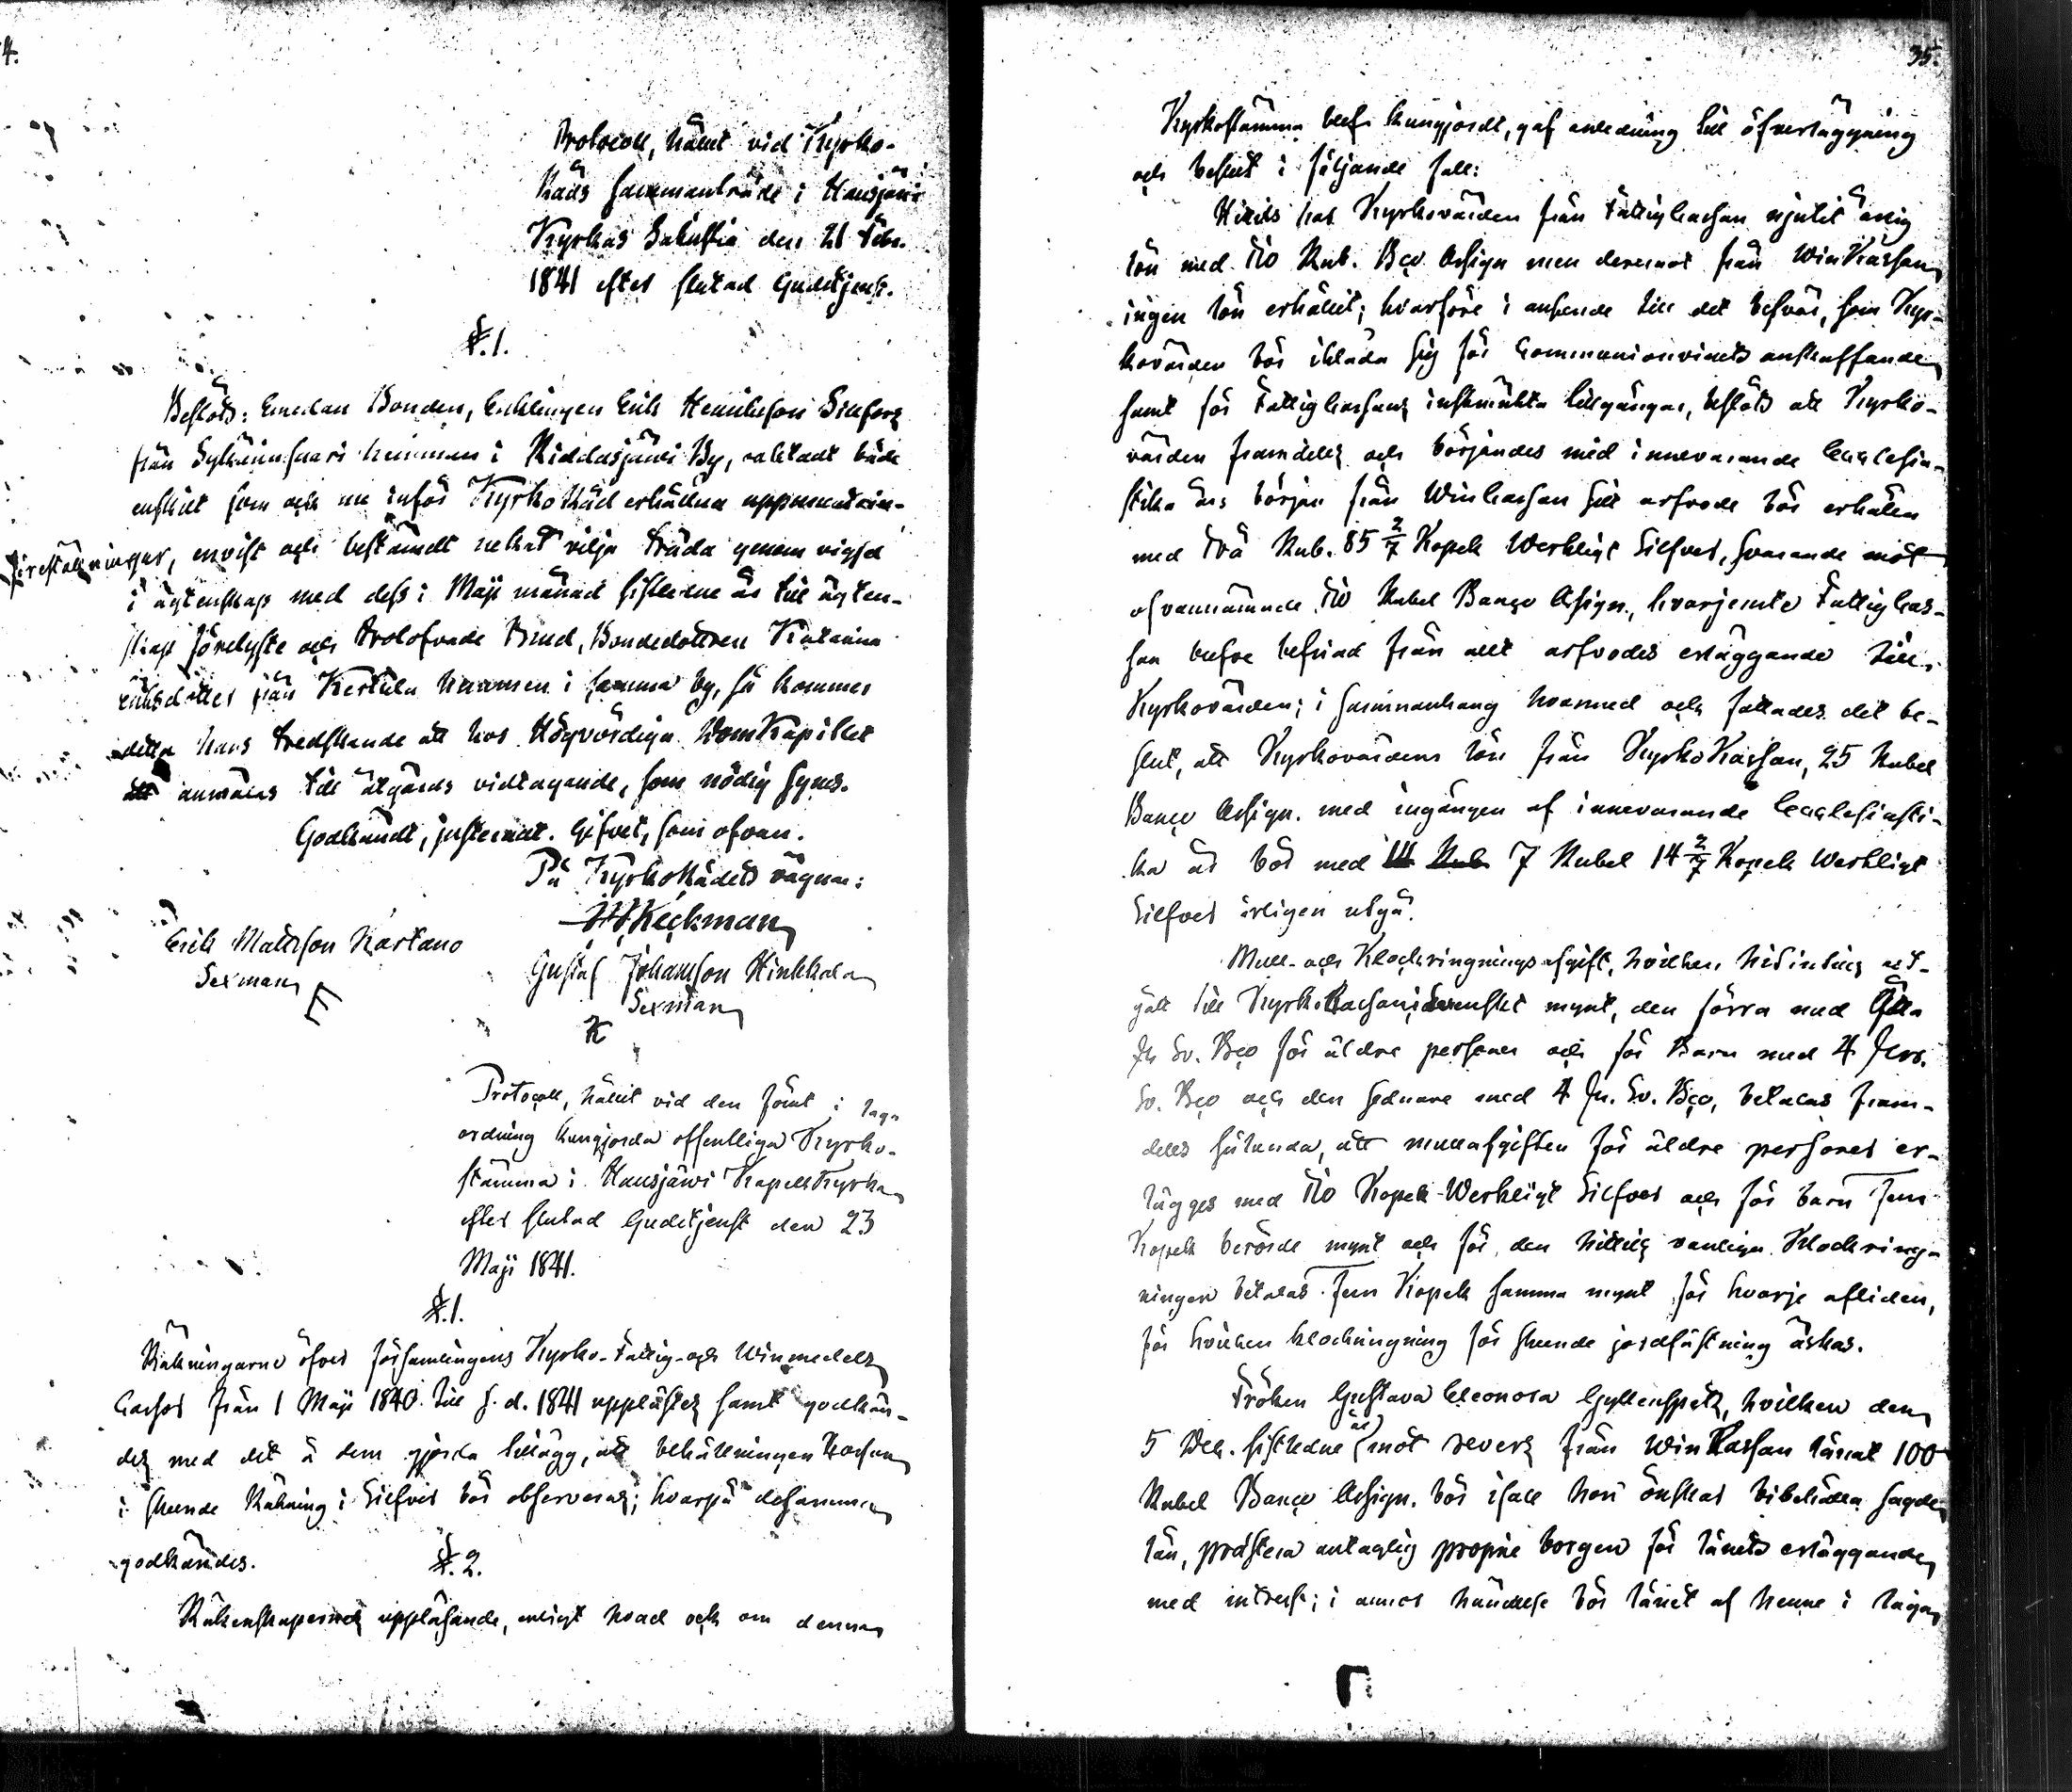 4.
Protocoll, hållit vid Kyrko-
Råds sammanträde i Hausjärvi
Kyrkas Sakristia den 21 Febr.
1841 efter slutad Gudstjenst.
§. 1.
Beslöts: Emedan Bonden, Enklingen Erik Henriksson
från hemman i Riddasjärvi By, oaktadt både
enskilt som ock nu inför KyrkoRåd erhållna uppmuntrin-
föreställningar, envist och bestämdt nekat vilja träda genom vigsel
i ägtenskap med dess i Maji månad sistledne år till ägten-
skap förelyste och trolofvade Brud, Bondedottren Katarina
Eriksdotter från Kerkola hemman i samma by, så kommer
detta hans tredskande att hos Högvördiga DomKapitlet
att anmälas till åtgärds vidtagande, som nödig synes.
Godkändt, justeradt. Gifvet, som ofvan.
På KyrkoRådets vägnar:
Keckman
Erik Mattsson Kartano
Sexman
Gustaf Johansson Hinkkala
Sexman
K
Protocoll, hållit vid den förut i laga
ordning kungjorda offentliga Kyrko-
stämma i Hausjärvi KapellKyrka
efter slutad Gudstjenst den 23
Maji 1841.
§. 1.
Räkningarne öfver församlingens Kyrko- Fattig- och Winmedels
Cassor från 1 Maji 1840 till s. d. 1841 upplästes samt godkän-
des med det å dem gjorda tillägg, att behållningen
i skeende Räkning i Silfver bör observeras; hvarpå desamma
godkändes.
§. 2.
Räkenskapernes uppläsande, enligt hvad ock om denna
35.
Kyrkostämma blef kungjordt, gaf anledning till öfverläggning
och beslut i följande fall:
Hittils har Kyrkovärden från Fattigkassan njutit årlig
lön med Tio Rub. Bco Assign men deremot från WinKassan
ingen lön erhållit; hvarföre i anseende till det besvär, som Kyr-
kovärden bör ikläda sig för Communionvinets anskaffande
samt för Fattigkassans inskränkta tillgångar, beslöts att Kyrko-
värden framdeles och börjandes med innevarande Ecclesia-
stika års början från Winkassan sitt arfvode bör erhålla
med Två Rub. 85 2/7 Kopek Werkligt Silfver, svarande mot
ofvannämnde Tio Rubel Banco Assign., hvarjemte Fattigkas-
san blefve befriad från allt arfvodes erläggande till
Kyrkovärden; i sammanhang hvarmed och fattades det be-
slut, att Kyrkovärdens lön från KyrkoKassan, 25 Rubel
Banco Assign. med ingången af innevarande Ecclesiasti-
ka år bör med 14 Rub 7 Rubel 14 2/7 Kopek Werkligt
Silfver årligen utgå.
Mull- och Klockringningsafgift, hvilken hitintills ut-
gått till KyrkoKassan i Svenskt mynt, den förra med Åtta
sk Sv. Bco för äldre personer och för Barn med 4 sk.
Sv. Bco och den sednare med 4 sk. Sv. Bco, betalas fram-
deles sålunda, att mullafgiften för äldre personer er-
lägges med Tio Kopek Werkligt Silfver och för barn Fem
Kopek berörde mynt och för den hittills vanliga Klockring-
ningen betalas Fem Kopek samma mynt för hvarje afliden,
för hvilken klockringning för skeende jordfästning äskas.
Fröken Gustava Eleonora Gyllenspetz, hvilken den
5 Dec. sistledne år mot revers från WinKassan lånat 100
Rubel Banco Assign. bör ifall hon önskar bibehålla sagde
lån, prestera antaglig proprie borgen för lånets erläggande
med intresse; i annor händelse bör lånet af henne i laga